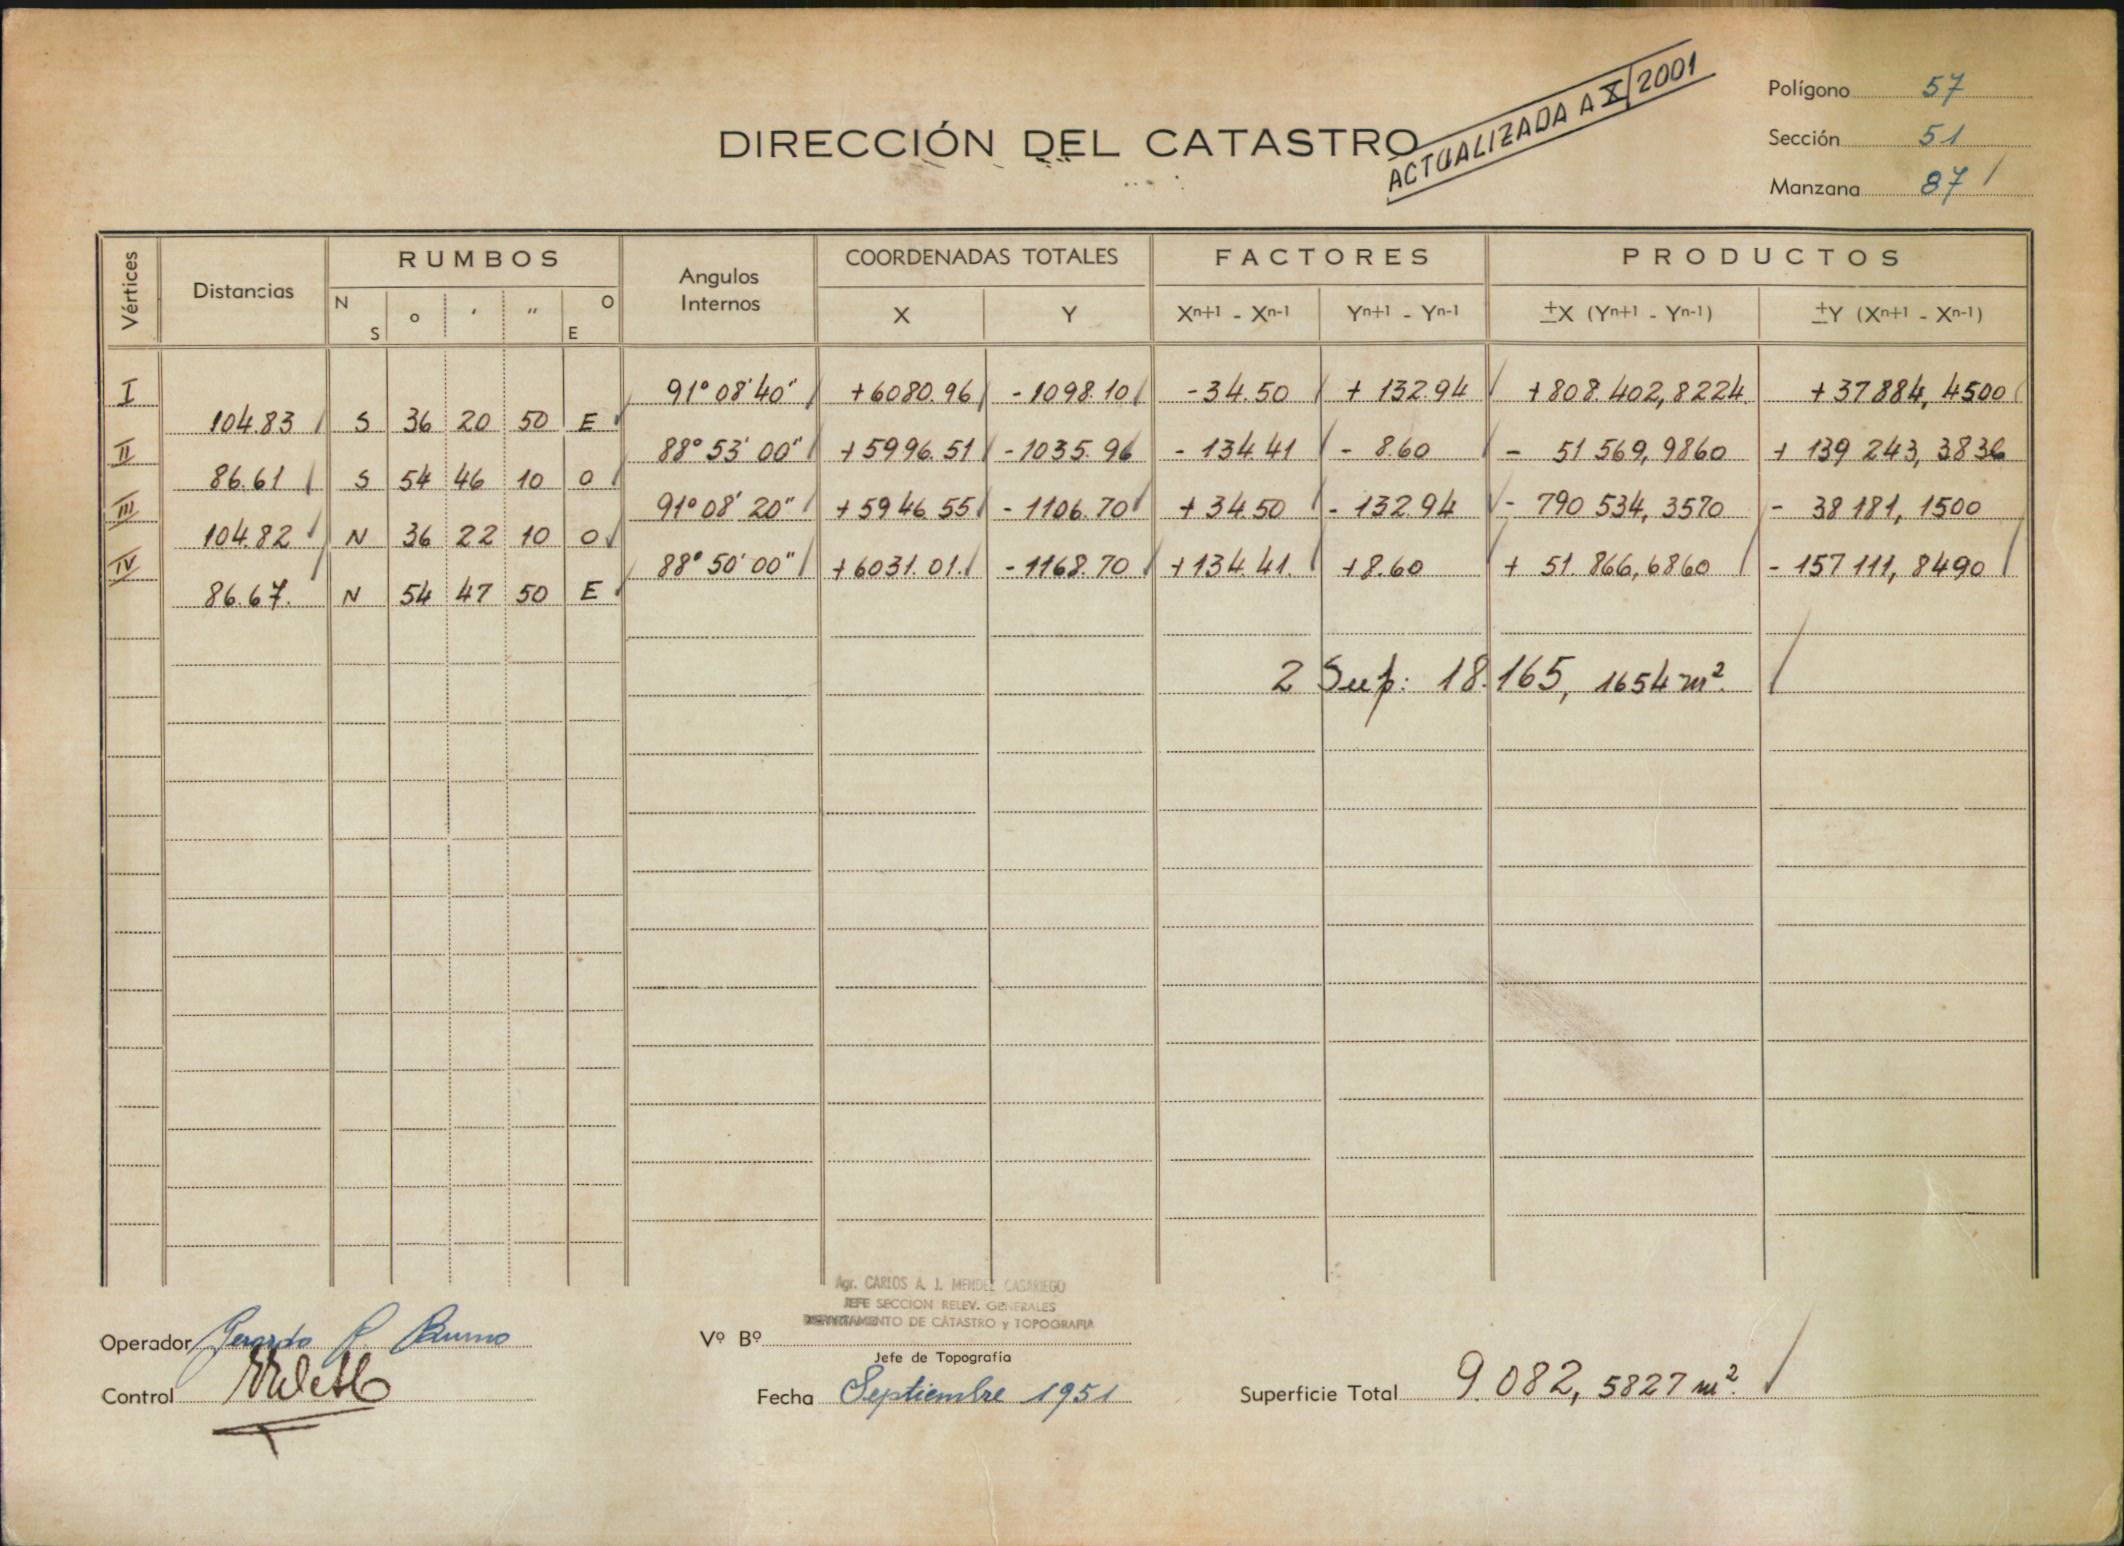 ACTUALIZADA A X/2001
Polígono 57
DIRECCIÓN DEL CATASTRO
Sección 51
Manzana 87
Vértices Distancias RUMBOS Angulos Internos COORDENADAS TOTALES FACTORES PRODUCTOS
N S o ′ ″ O E X Y Xn+1 - Xn-1 Yn+1 - Yn-1 ±X (Yn+1 - Yn-1) ±Y (Xn+1 - Xn-1)
I 91° 08' 40" +6080.96 -1098.10 -34.50 + 132.94 +808.402,8224 +37884,4500
104.83 S 36 20 50 E
II 88° 53' 00" +5996.51 -1035.96 - 134.41 - 8.60 - 51 569,9860 + 139 243,3836
86.61 S 54 46 10 O
III 91° 08' 20" +5946.55 - 1106.70 + 34.50 - 132.94 - 790 534,3570 - 38 181,1500
104.82 N 36 22 10 O
IV 88° 50' 00" +6031.01 - 1168.70 +134.41. +8.60 + 51.866,6860 - 157 111,8490
86.67. N 54 47 50 E
2 Sup: 18.165,1654 m².
Agr. CARLOS A. J. MENDEZ CASARIEGO
JEFE SECCION RELEV. GENERALES
DEPARTAMENTO DE CATASTRO y TOPOGRAFIA
Operador Gerardo
Vº Bº
Jefe de Topografía
Control
Fecha Septiembre 1951
Superficie Total 9.082,5827 m².